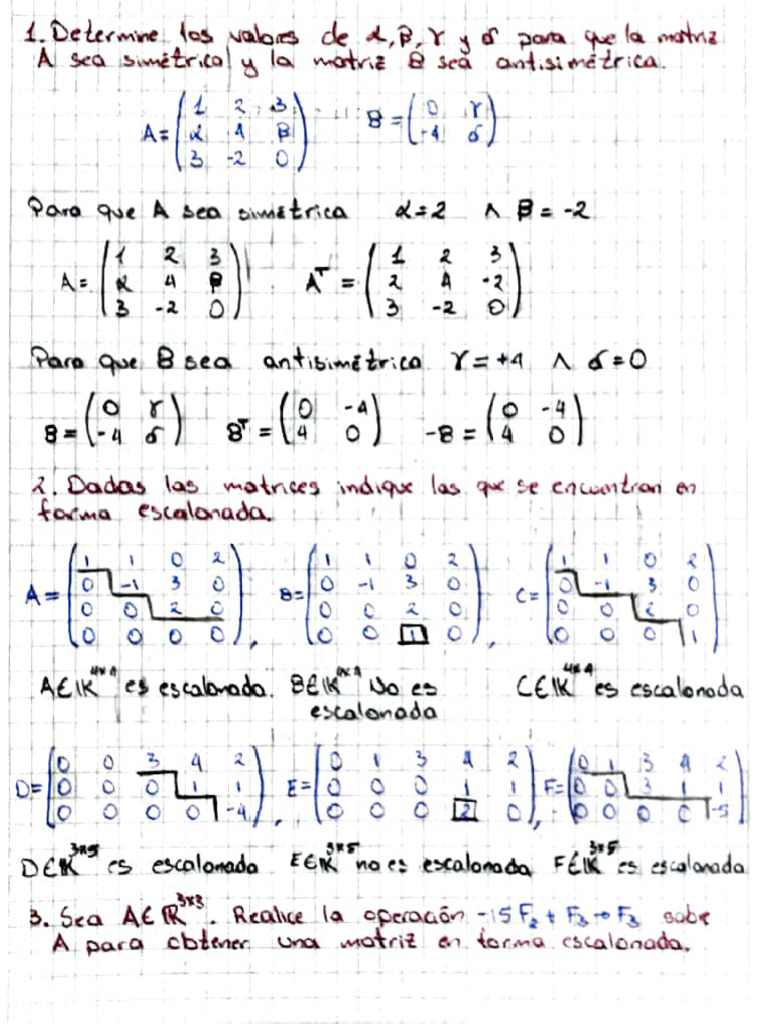 1. Determine los valores de α, β, γ y δ para que la matriz
A sea simétrica y la matriz B sea antisimétrica.
A = (1 2 3; α 4 β; 3 -2 0) B = (0 γ; -4 δ)
Para que A sea simétrica α = 2 ∧ β = -2
A = (1 2 3; α 4 β; 3 -2 0) Aᵀ = (1 2 3; 2 4 -2; 3 -2 0)
Para que B sea antisimétrica γ = +4 ∧ δ = 0
B = (0 γ; -4 δ) Bᵀ = (0 -4; 4 0) -B = (0 -4; 4 0)
2. Dadas las matrices indique las que se encuentran en
forma escalonada.
A = (1 1 0 2; 0 -1 3 0; 0 0 2 0; 0 0 0 0), B = (1 1 0 2; 0 -1 3 0; 0 0 2 0; 0 0 1 0), C = (1 1 0 2; 0 -1 3 0; 0 0 2 0; 0 0 0 1)
A∈𝕂⁴ˣ⁴ es escalonada. B∈𝕂⁴ˣ⁴ No es escalonada C∈𝕂⁴ˣ⁴ es escalonada
D = (0 0 3 4 2; 0 0 0 1 1; 0 0 0 0 -4), E = (0 1 3 4 2; 0 0 0 1 1; 0 0 0 2 0), F = (0 1 3 4 2; 0 0 3 1 1; 0 0 0 0 -5)
D∈𝕂³ˣ⁵ es escalonada E∈𝕂³ˣ⁵ no es escalonada F∈𝕂³ˣ⁵ es escalonada
3. Sea A∈ℝ³ˣ³. Realice la operación -15F₂ + F₃ → F₃ sobre
A para obtener una matriz en forma escalonada.